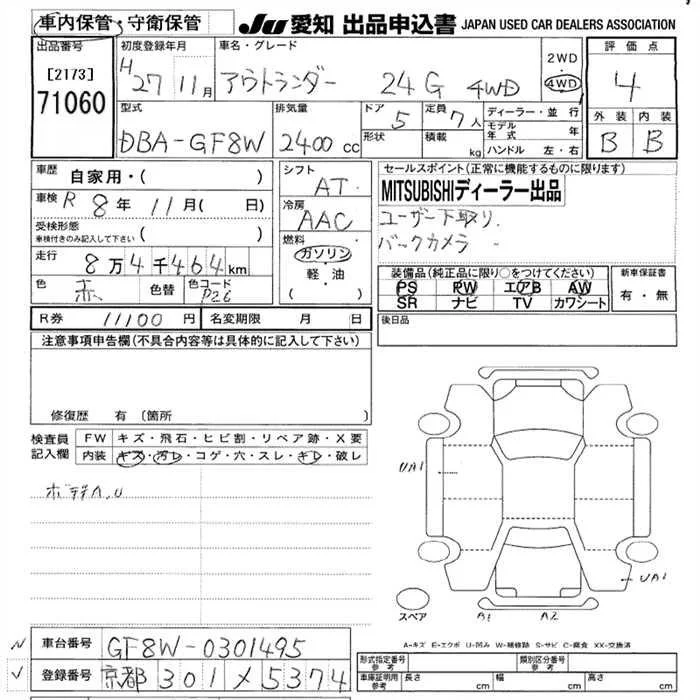 車内保管・守衛保管 JU 愛知 出品申込書 JAPAN USED CAR DEALERS ASSOCIATION
出品番号 初度登録年月 車名・グレード 評価点
[2173] 71060 H27 11月 アウトランダー 24G 4WD 2WD 4WD 4
型式 排気量 ドア 定員 ディーラー・並行 外装 内装
DBA-GF8W 2400 cc 5 7人 モデル年式 年 B B
形状 積載 kg ハンドル 左・右
車歴 自家用・( ) シフト AT セールスポイント(正常に機能するものに限ります)
車検 R 8年 11月( 日) 冷房 AAC MITSUBISHIディーラー出品
受検形態 車検付きのみ記入して下さい ( ) 燃料 ガソリン ユーザー下取り.
走行 8万4千464km 軽・油 バックカメラ
( ) 装備品(純正品に限り○をつけてください) 新車保証書
色 赤 色替 色コード P26 PS PW エアB AW 有・無
SR ナビ TV カワシート
R券 11100円 名変期限 月 日 後日品
注意事項申告欄(不具合内容等は具体的に記入して下さい)
修復歴 有 (箇所
検査員記入欄 FW キズ・飛石・ヒビ割・リペア跡・X要
内装 キズ・汚レ・コゲ・穴・スレ・キレ・破レ
UA1
ボデイA,U
UA1
スペア A1 A2
A-キズ E-エクボ U-凹み W-補修跡 S-サビ C-腐食 XX-交換済
車台番号 GF8W-0301495
登録番号 京都 301 メ 5374
形式指定番号 参考 類別区分番号 参考
車庫証明用 参考 長さ cm 幅 cm 高さ cm